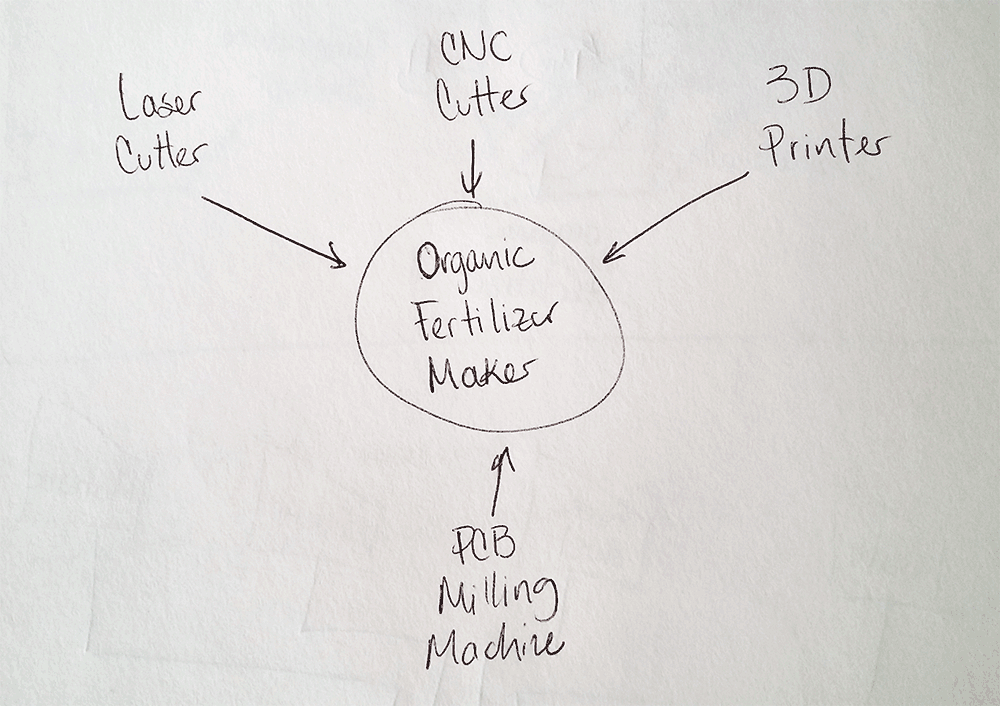 Laser
Cutter
CNC
Cutter
3D
Printer
Organic
Fertilizer
Maker
PCB
Milling
Machine